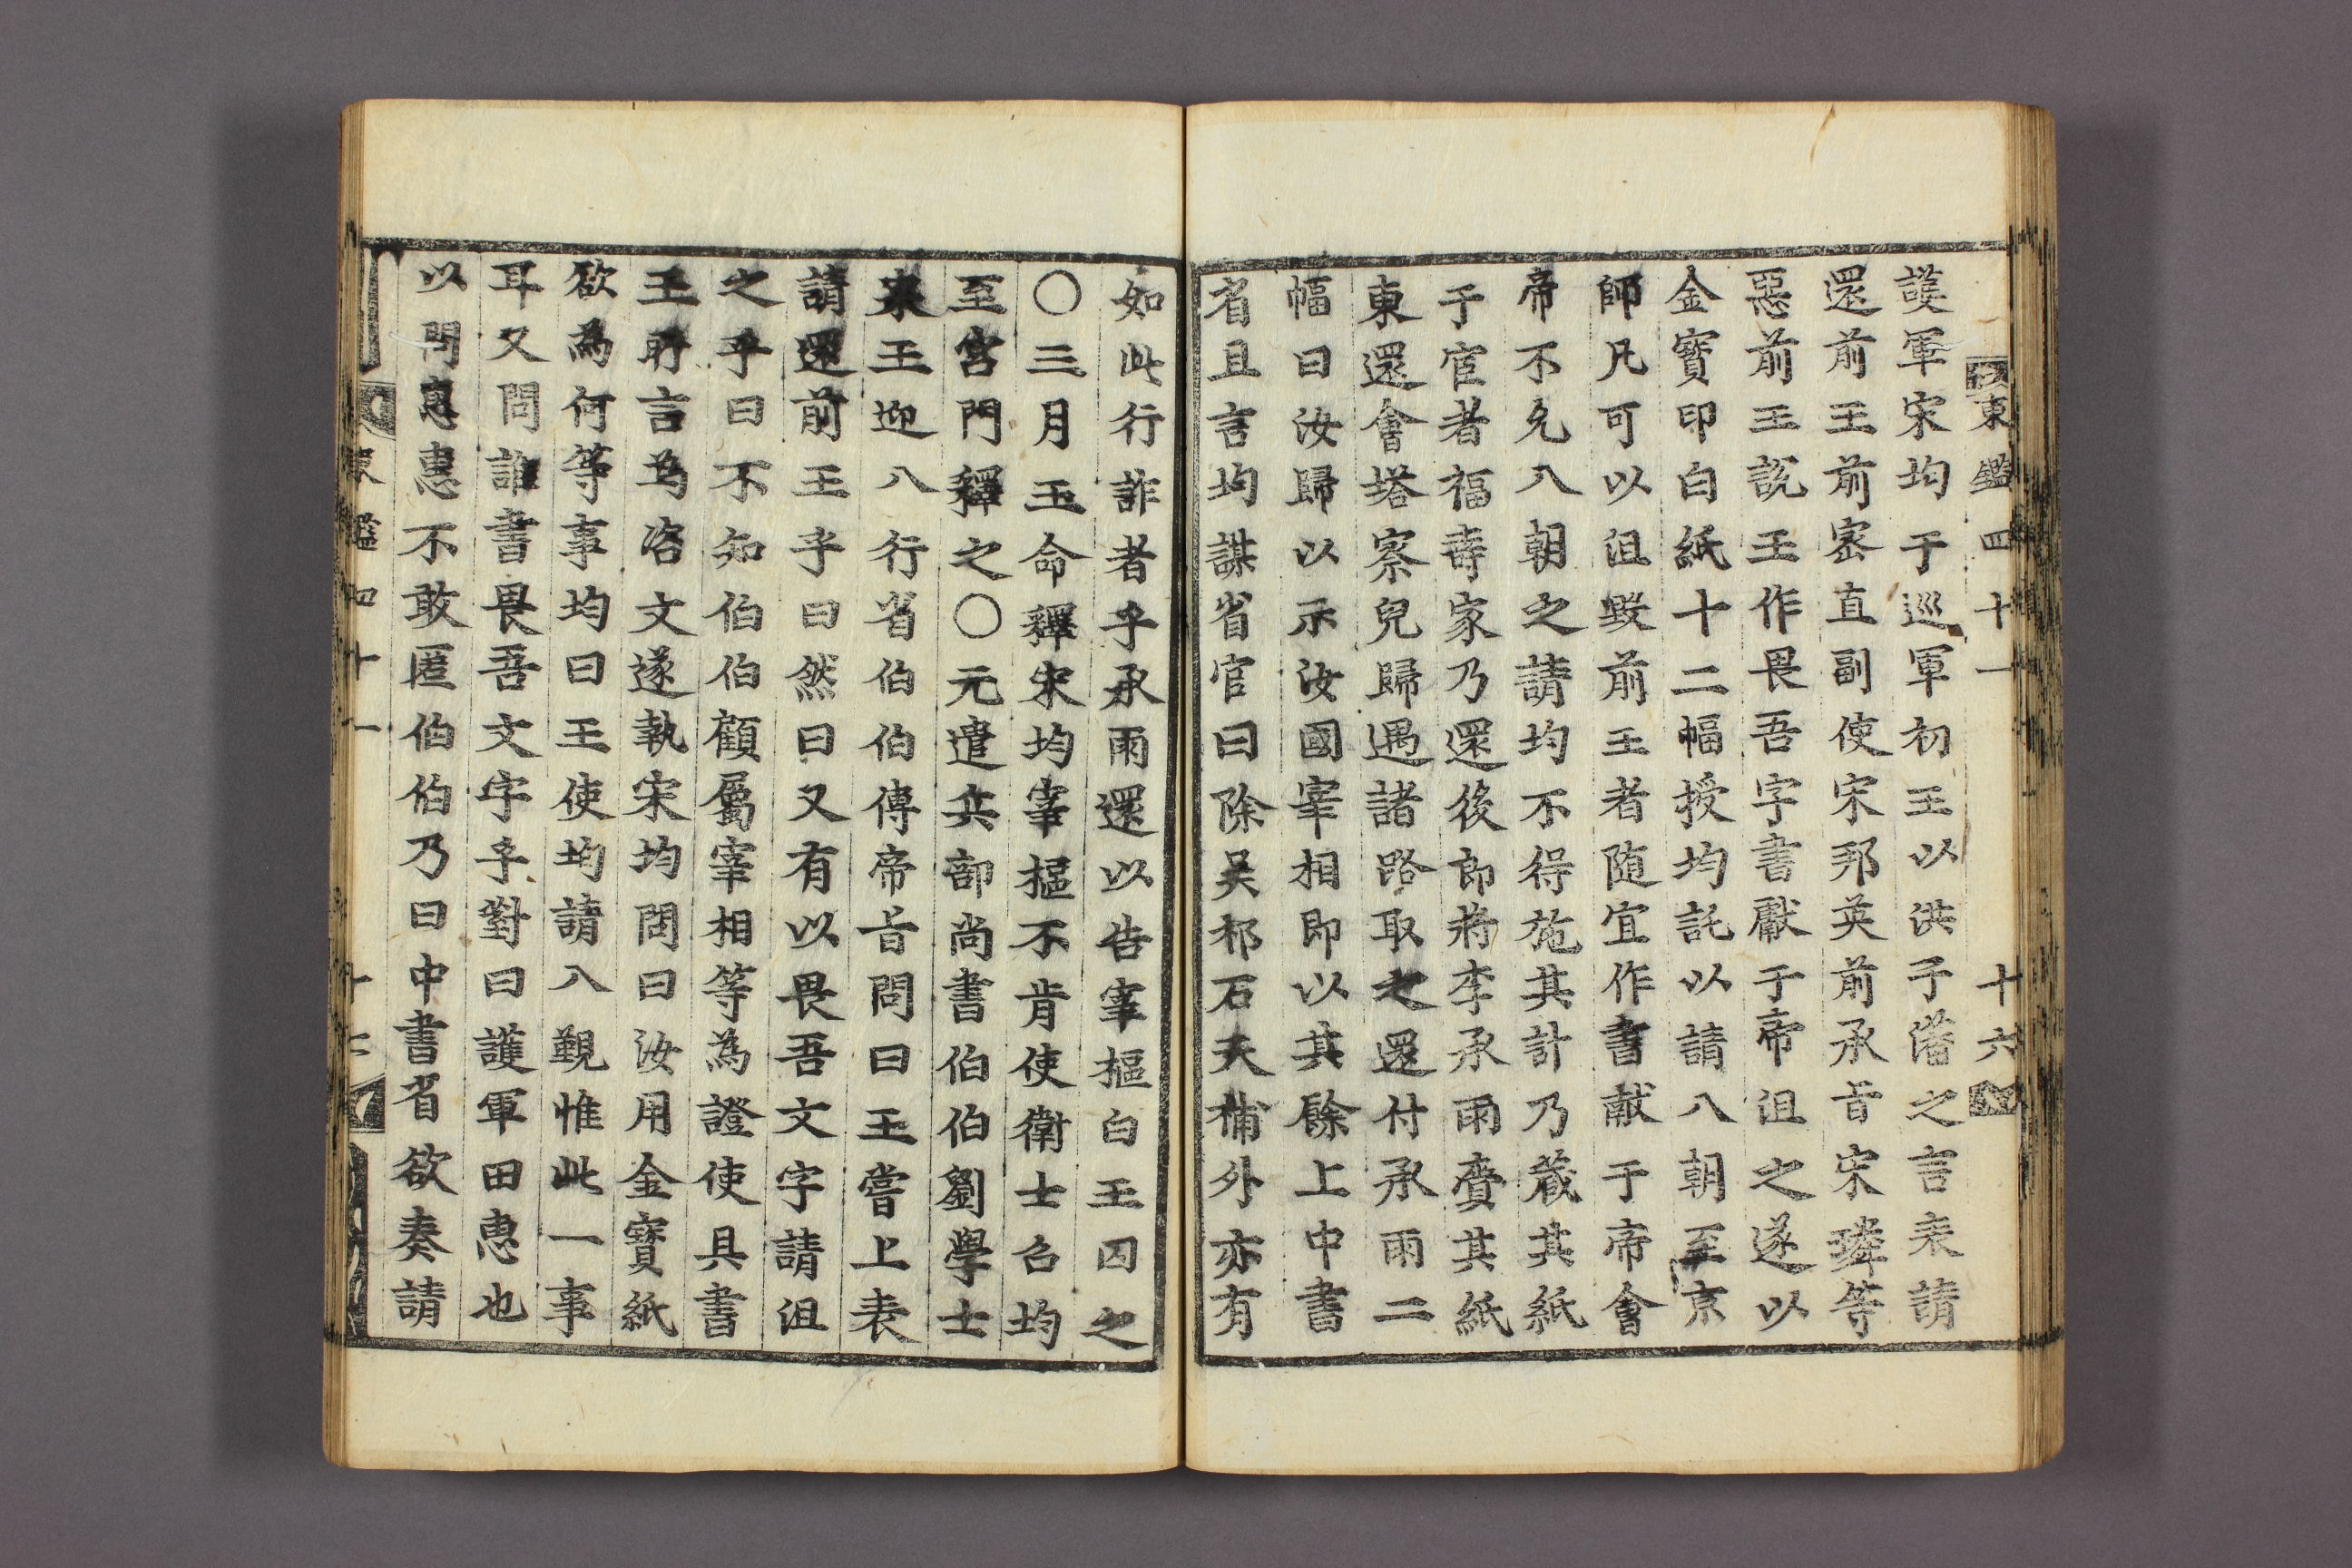 東鑑四十一 十六
護軍宋均于巡軍初王以洪子藩之言表請
還前王前密直副使宋邦英前承旨宋璘等
惡前王說王作畏吾字書獻于帝沮之遂以
金寶印白紙十二幅授均託以請入朝至京
師凡可以沮毁前王者随宜作書献于帝會
帝不允入朝之請均不得施其計乃蔵其紙
于宦者福壽家乃還後郎將李承雨齎其紙
東還會塔察兒歸遇諸路取之還付承雨二
幅曰汝歸以示汝國宰相即以其餘上中書
省且言均謀省官曰除吴祁石天補外亦有
如此行詐者乎承雨還以告宰樞白王囚之
〇三月王命釋宋均宰樞不肯使衛士召均
至宮門釋之〇元遣兵部尚書伯伯劉學士
來王迎入行省伯伯傳帝旨問曰王嘗上表
請還前王乎曰然曰又有以畏吾文字請沮
之乎曰不知伯伯顧屬宰相等為證使具書
王所言為咨文遂執宋均問曰汝用金寶紙
欲為何等事均曰王使均請入覲惟此一事
耳又問誰書畏吾文字乎對曰護軍田惠也
以問惠惠不敢匿伯伯乃曰中書省欲奏請
東鑑四十一 十七